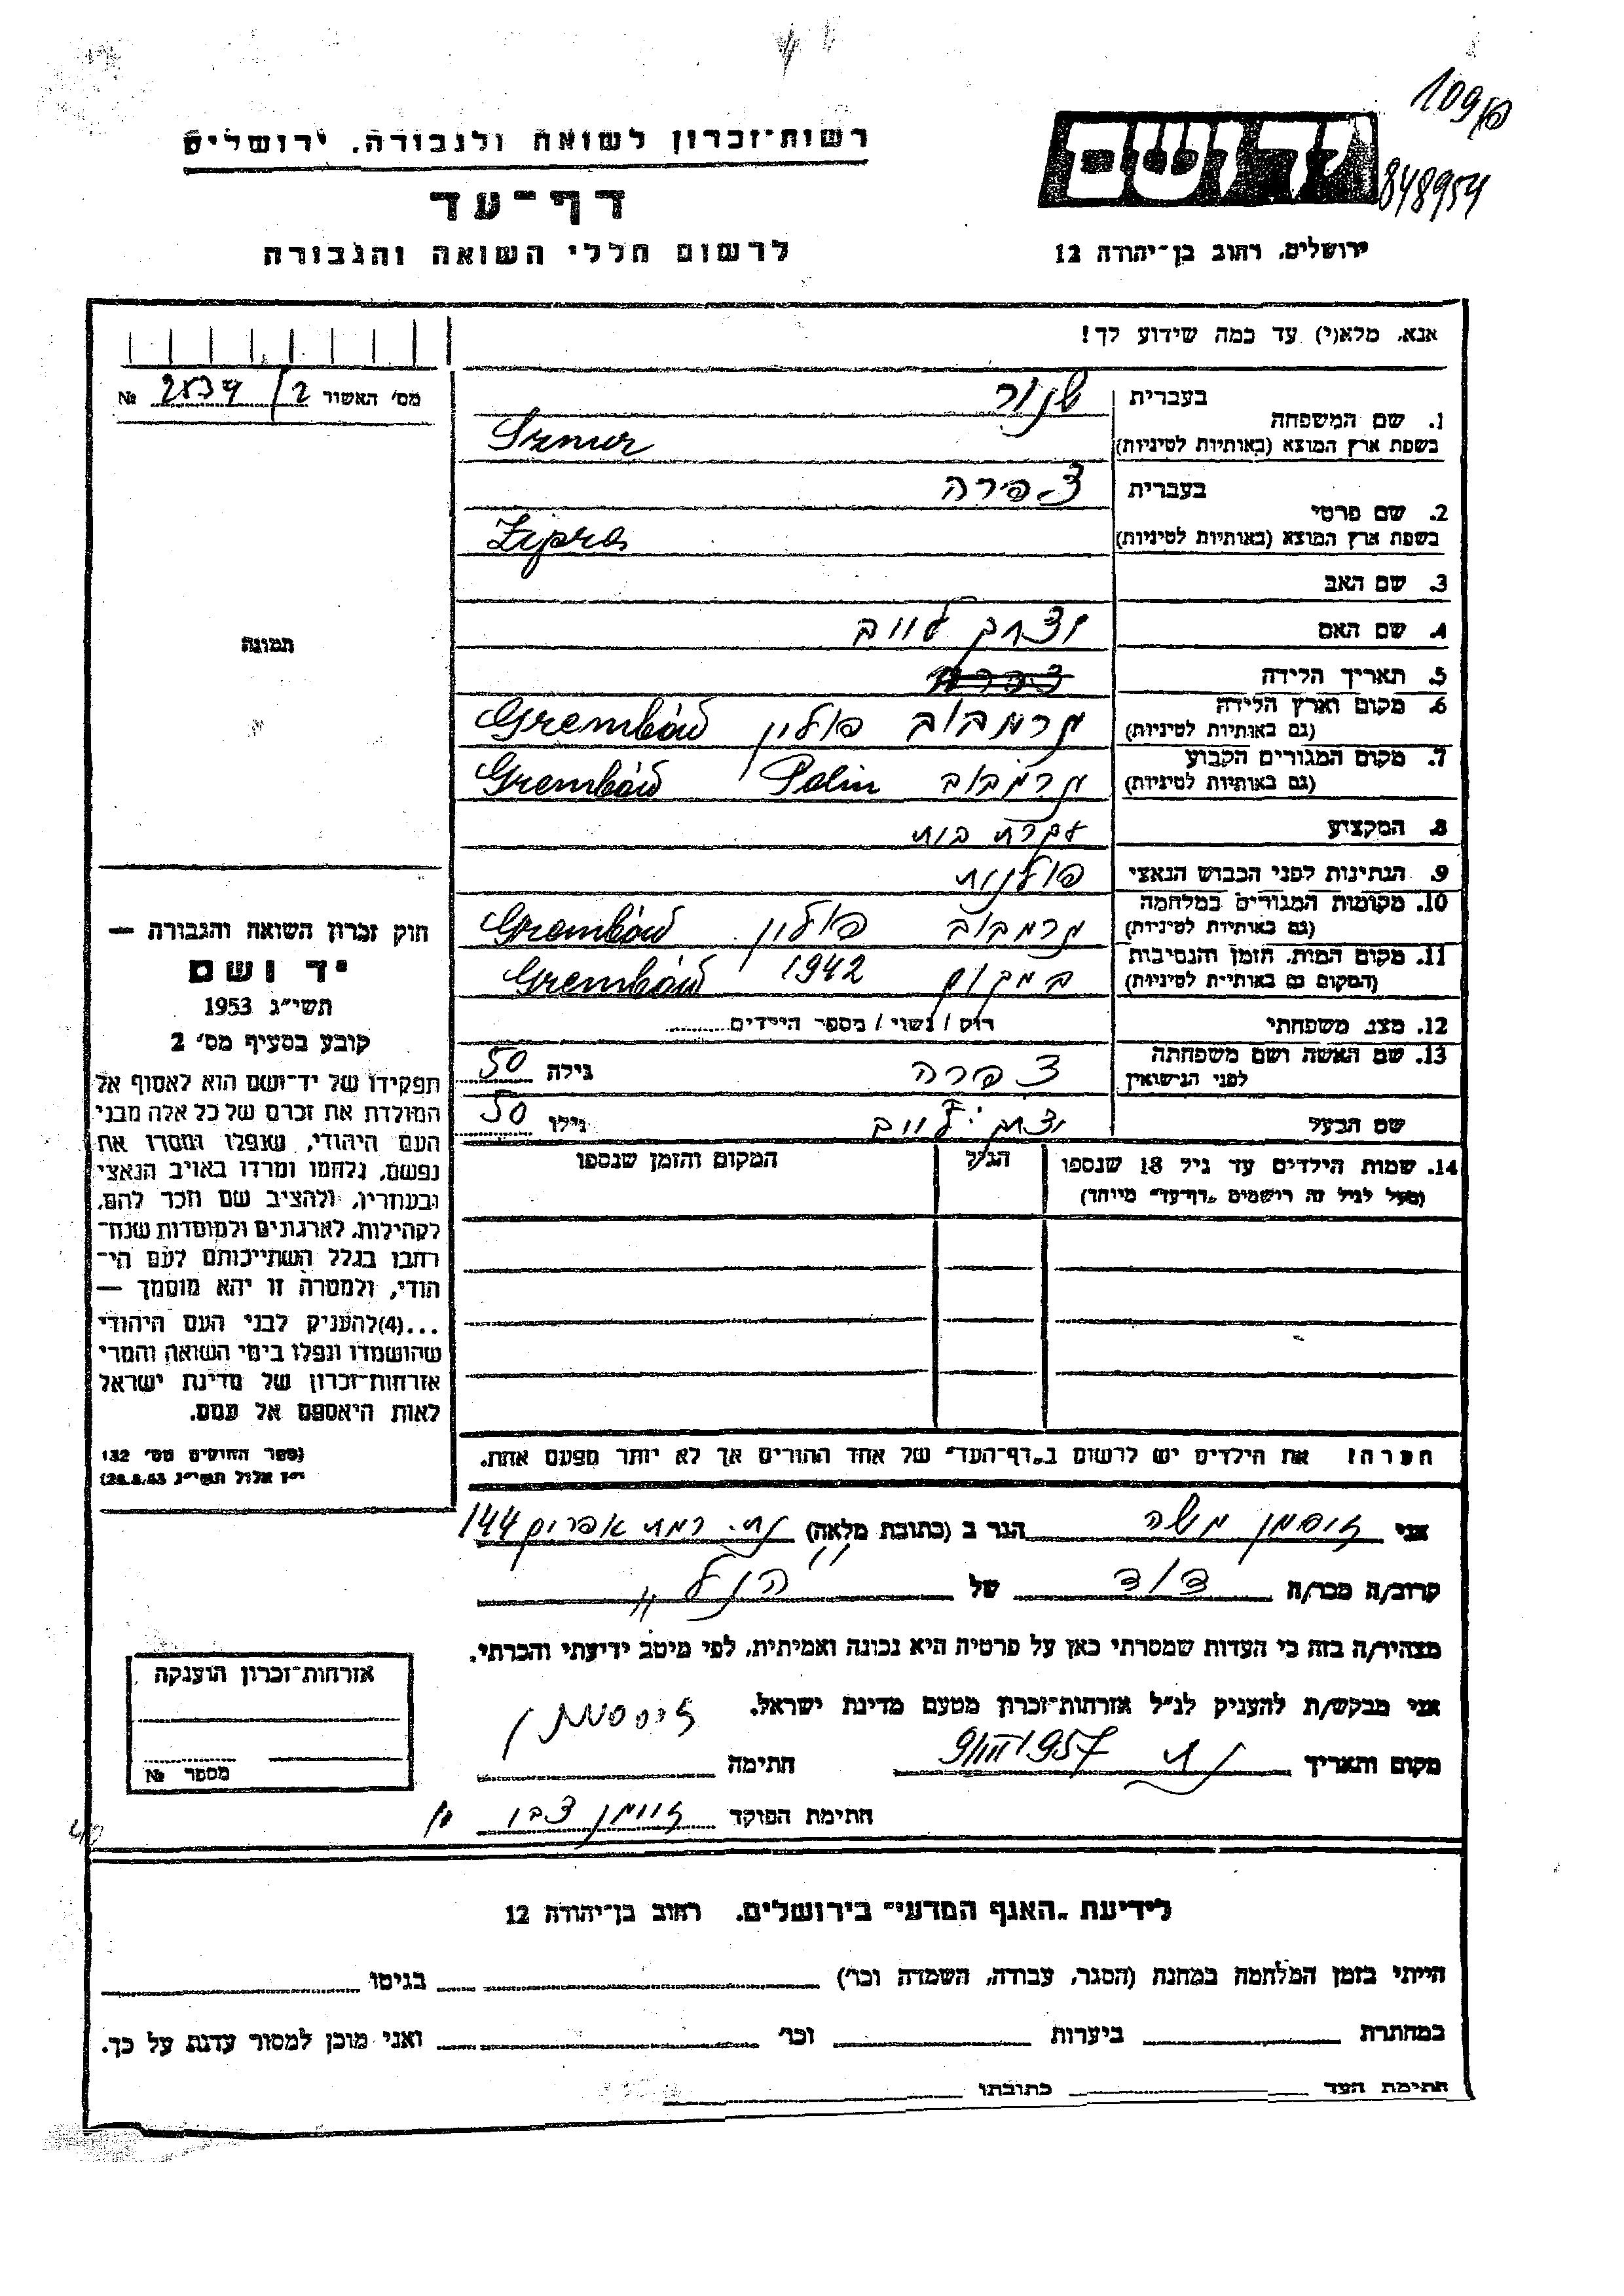 109/
848954
רשות־זכרון לשואה ולגבורה. ירושלים
יד ושם
דף־עד
לרשום חללי השואה והגבורה
ירושלים. רחוב בן־יהודה 12
אנא. מלא(י) עד כמה שידוע לך!
מס׳ האשור 2834/2 №
תמונה
1. שם המשפחה
בעברית שנור
בשפת ארץ המוצא (באותיות לטיניות) Sznur
2. שם פרטי
בעברית צפרה
בשפת ארץ המוצא (באותיות לטיניות) Zipra
3. שם האב
4. שם האם
5. תאריך הלידה
6. מקום וארץ הלידה
(גם באותיות לטיניות) תרמבוב פולין Grembów
7. מקום המגורים הקבוע
(גם באותיות לטיניות) תרמבוב Polin Grembów
8. המקציע עקרת בית
9. הנתינות לפני הכבוש הנאצי פולנית
10. מקומות המגורים במלחמה
(גם באותיות לטיניות) תרמבוב פולין Grembów
11. מקום המות. הזמן והנסיבות
(המקום גם באותיות לטיניות) במקום 1942 Grembów
12. מצב משפחתי רוק / נשוי / מספר הילדים
13. שם האשה ושם משפחתה
לפני הנישואין צפרה גילה 50
שם הבעל גילו 50
14. שמות הילדים עד גיל 18 שנספו
(מעל לגיל זה רישמים „דף־עד״ מיוחד)
הגיל
המקום והזמן שנספו
חוק זכרון השואה והגבורה —
יד ושם
תשי״ג 1953
קובע בסעיף מס׳ 2
תפקידו של יד־ושם הוא לאסוף אל
המולדת את זכרם של כל אלה מבני
העם היהודי, שנפלו ומסרו את
נפשם, נלחמו ומרדו באויב הנאצי
ובעוזריו, ולהציב שם וזכר להם,
לקהילות, לארגונים ולמוסדות שנח־
רבו בגלל השתייכותם לעם הי־
הודי, ולמטרה זו יהא מוסמך —
...(4)להעניק לבני העם היהודי
שהושמדו ונפלו בימי השואה והמרי
אזרחות־זכרון של מדינת ישראל
לאות היאספם אל עמם.
(ספר החוקים מס׳ 132
י״ז אלול תשי״ג 28.8.53)
הערה! את הילדים יש לרשום ב„דף־העד״ של אחד ההורים אך לא יותר מפעם אחת.
אני זוסמן משה הגר ב (כתובת מלאה) נת. רמת אפרים 144
קרוב/ה מכר/ה דוד של "הנ״ל"
מצהיר/ה בזה כי העדות שמסרתי כאן על פרטיה היא נכונה ואמיתית, לפי מיטב ידיעתי והכרתי.
אני מבקש/ת להעניק לנ״ל אזרחות־זכרון מטעם מדינת ישראל.
מקום ותאריך נת 9/III 1957 חתימה
חתימת הפוקד
אזרחות־זכרון הוענקה
מספר №
לידיעת „האגף המדעי״ בירושלים. רחוב בן־יהודה 12
הייתי בזמן המלחמה במחנה (הסגר, עבודה, השמדה וכו׳) בגיטו
במחתרת ביערות וכו׳ ואני מוכן למסור עדות על כך.
חתימת העד כתובתו